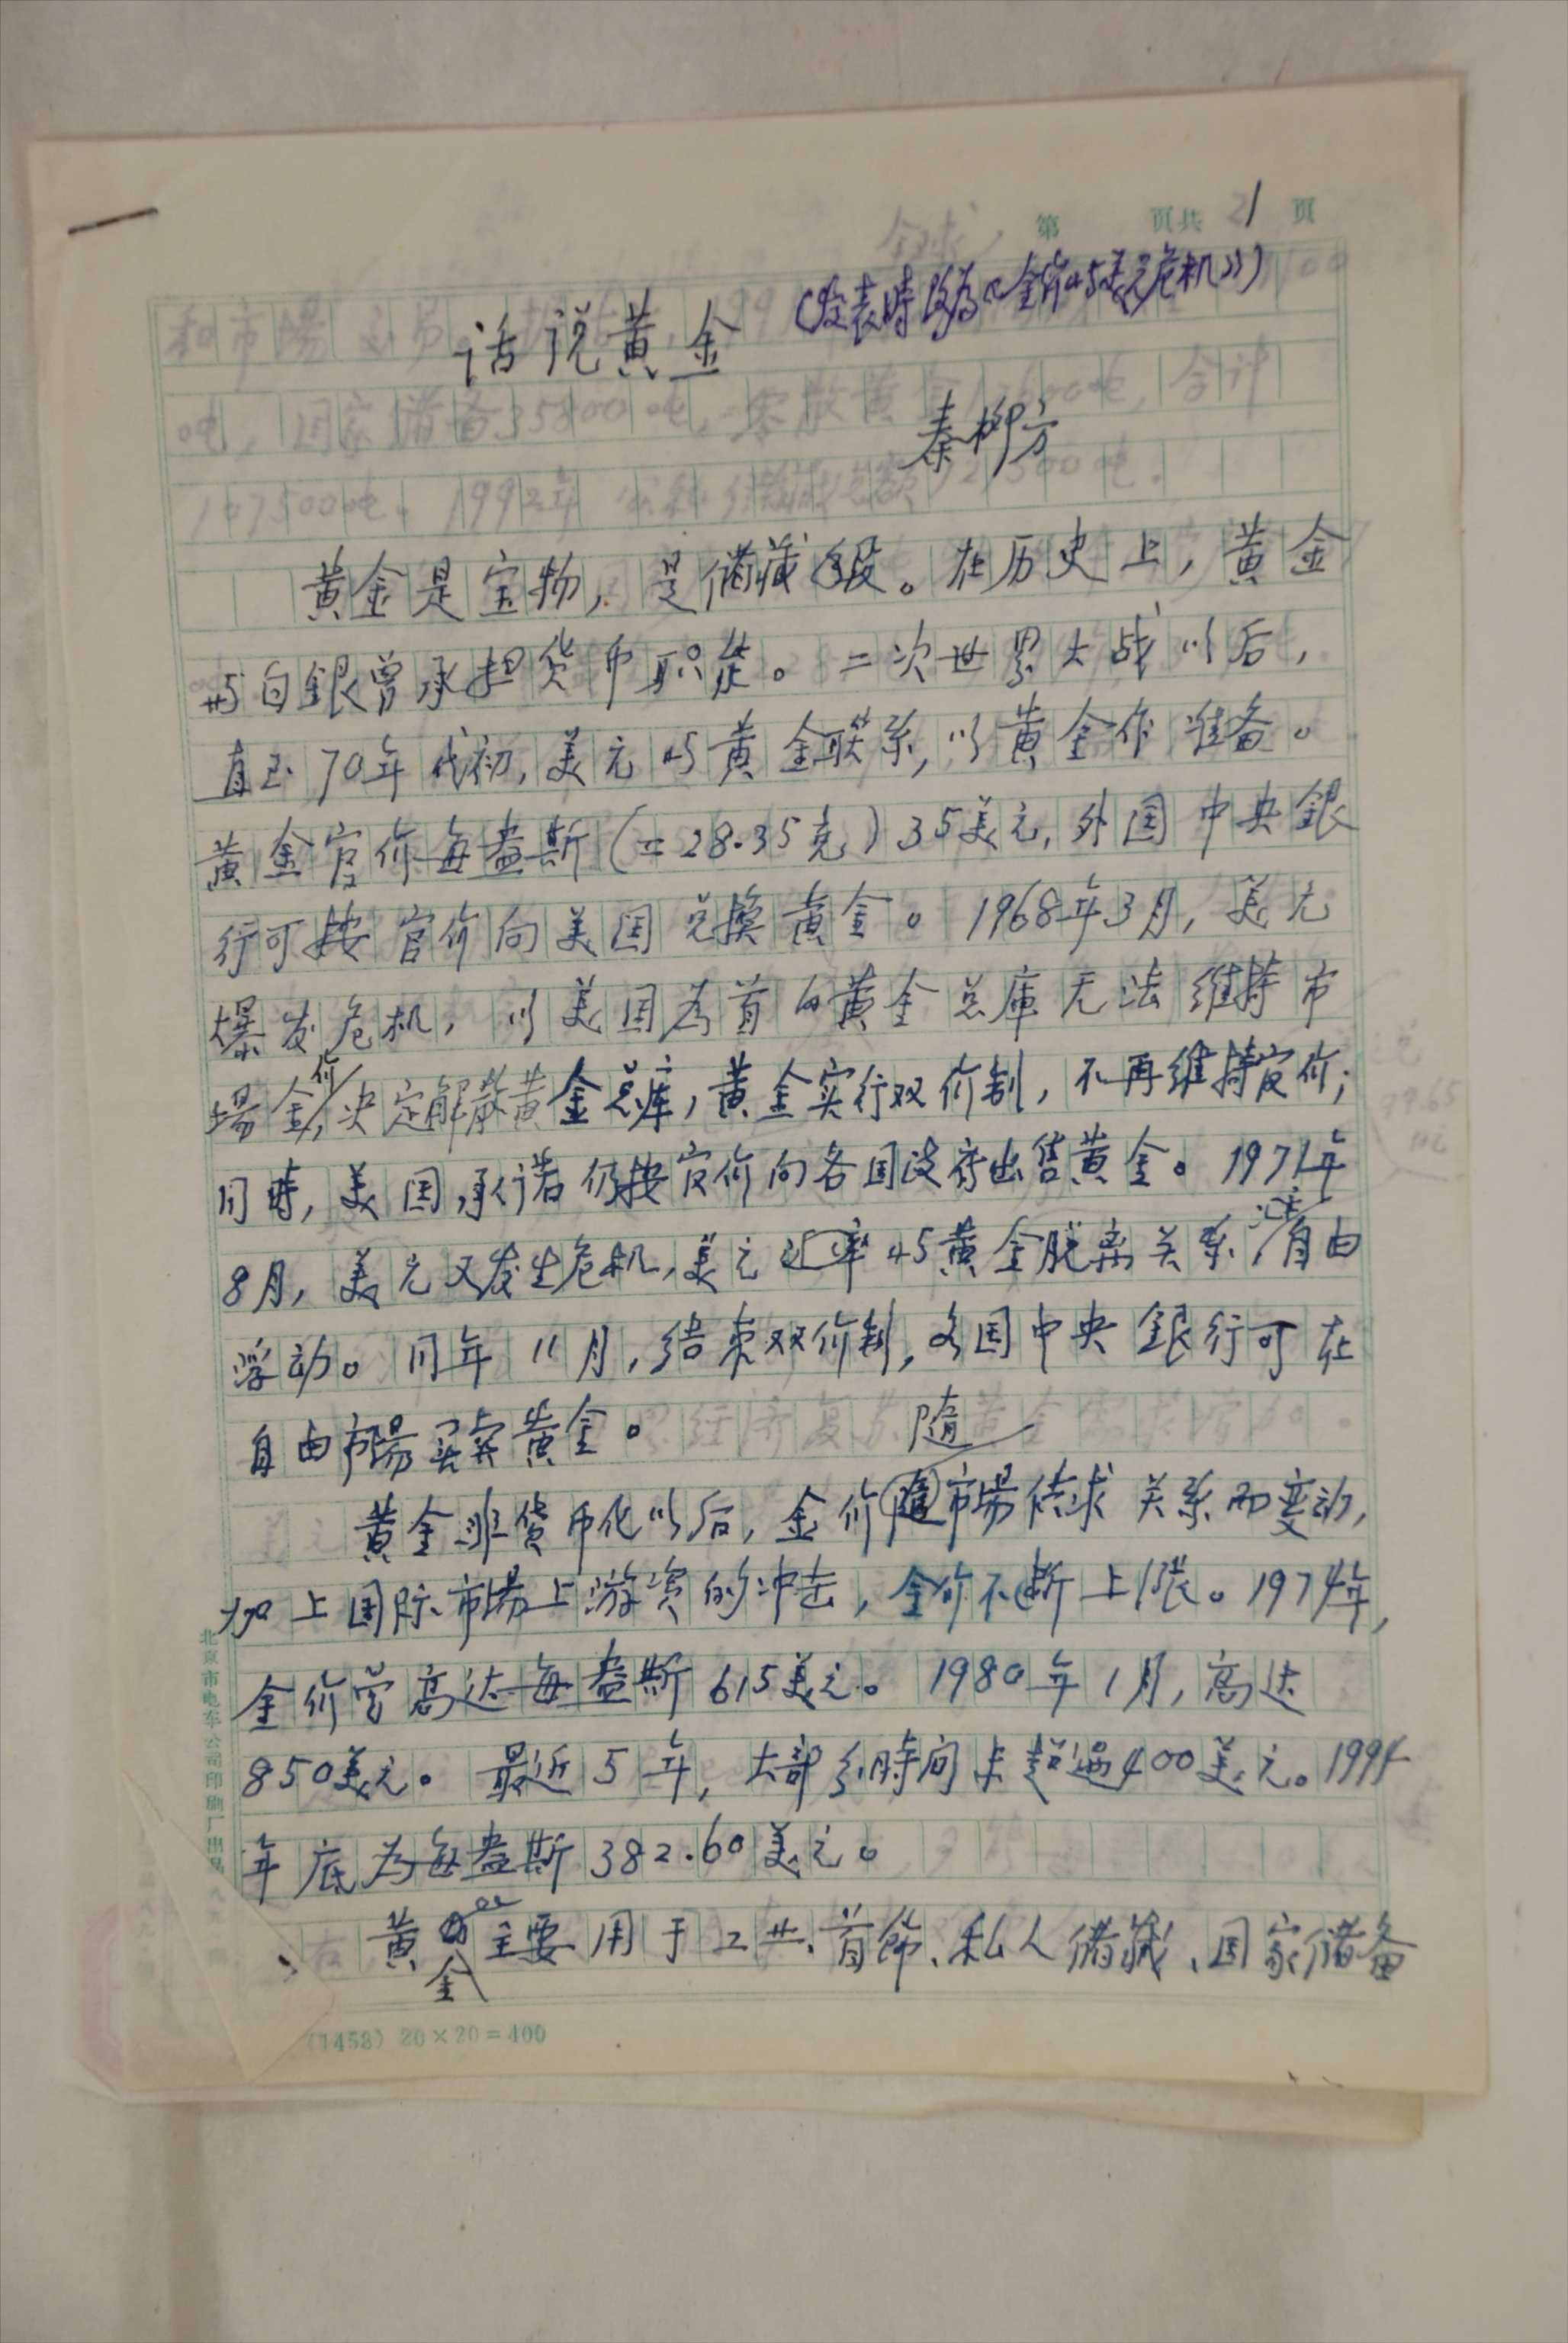 第 页共 21 页
(发表時改为《金价与美元危机》)
话说黄金
秦柳方
黄金是宝物，是储藏手段。在历史上，黄金
与白銀曾承担货币职能。二次世界大战以后，
直至70年代初，美元与黄金联系，以黄金作准备。
黄金官价每盎斯(=28.35克)35美元，外国中央銀
行可按官价向美国兑换黄金。1968年3月，美元
爆发危机，以美国为首的黄金总庫无法维持市
場金价，决定解散黄金总库，黄金实行双价制，不再维持官价；
同時，美国承诺仍按官价向各国政府出售黄金。1971年
8月，美元又发生危机，美元汇率与黄金脱离关系，自由
浮动。同年11月，结束双价制，各国中央銀行可在
自由市場买卖黄金。
黄金非货币化以后，金价随市場供求关系而变动，
加上国际市場上游资的冲击，金价不断上涨。1974年，
金价曾高达每盎斯615美元。1980年1月，高达
850美元。最近5年，大部分時间未超过400美元。1994
年底为每盎斯382.60美元。
黄金主要用于工业、首飾、私人储藏、国家储备
北京市电车公司印刷厂出品
(1458) 20×20=400